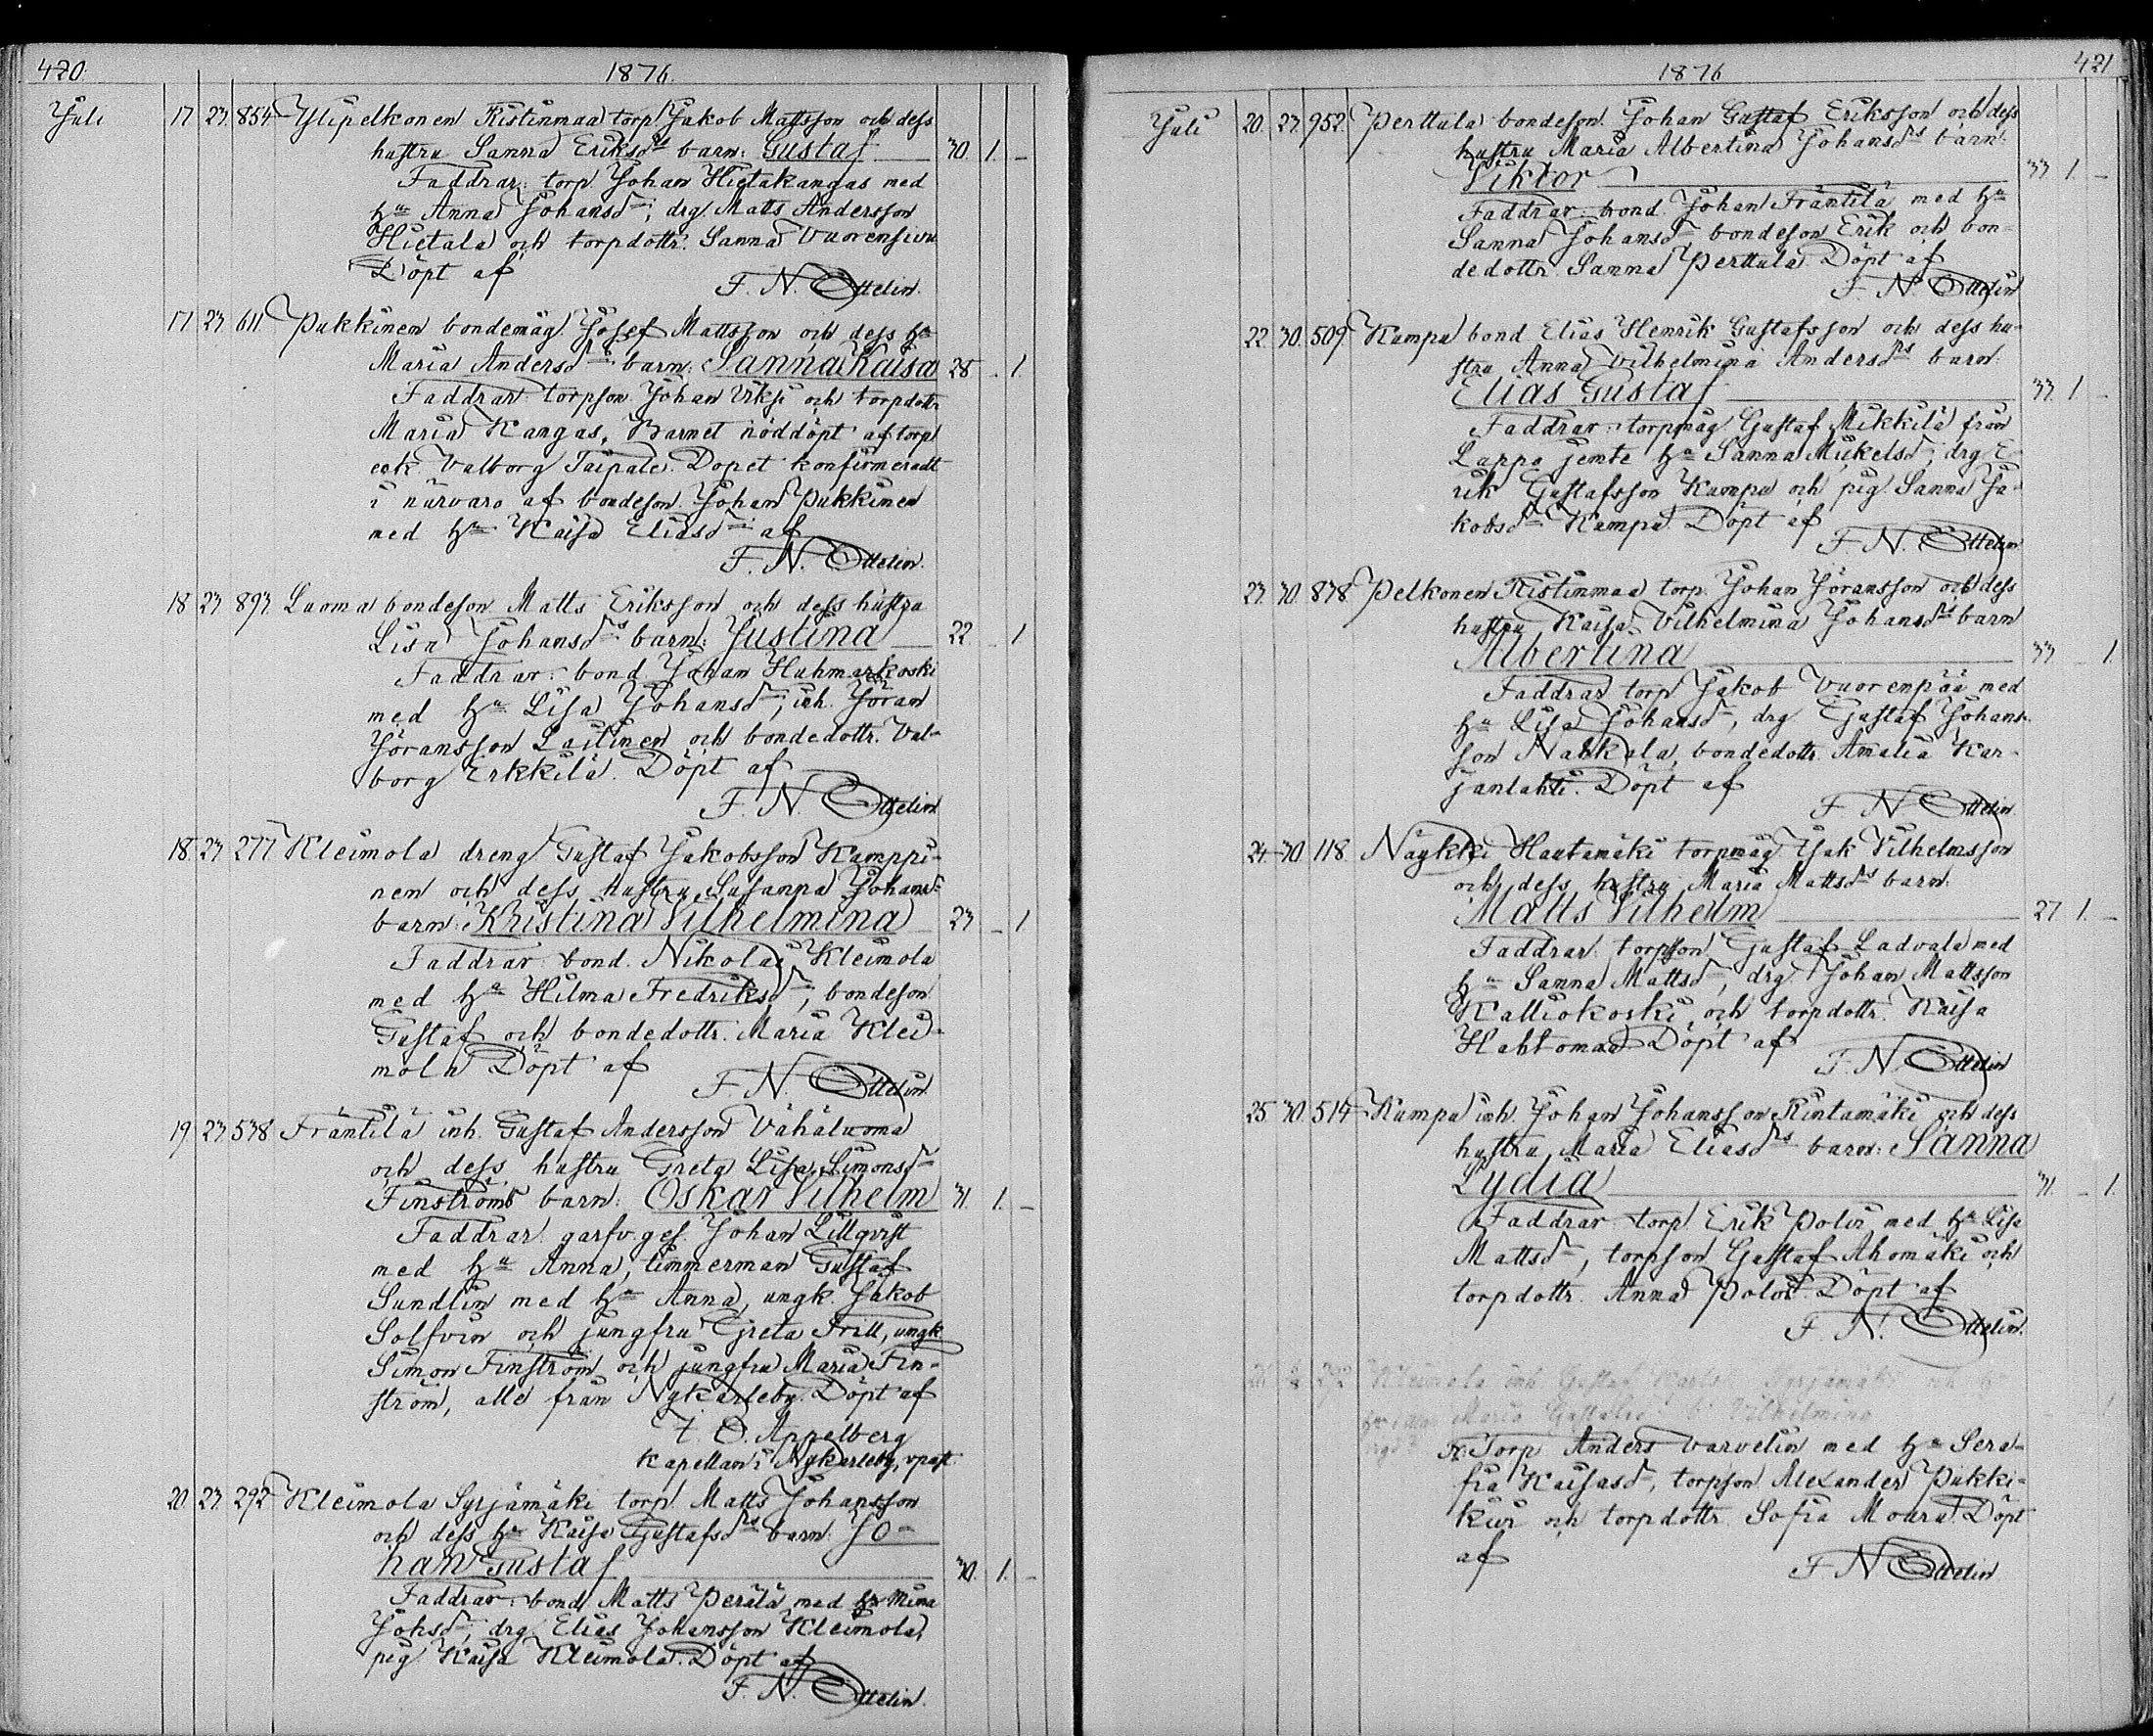 420. 1876.
Juli 17 23. 854 Ylipelkonen Ristinmaa torp. Jakob Mattsson och dess
hustru Sanna Eriksdrs barn: Gustaf 30. 1. –
Faddrar: torp. Johan Hietakangas med
hu Anna Johansdr; drg. Matts Andersson
Hietala och torpdottr. Sanna Vuorensivu
Döpt af
F. N. Ottelin.
17 23 611. Pukkinen bondemåg Josef Mattsson och dess hu
Maria Andersdrs barn: Sanna Kaisa 28 – 1.
Faddrar: torpson Johan Yrksi och torpdottr
Maria Kangas, Barnet nöddöpt af torp.
enk. Valborg Taipale. Dopet konfirmeradt
i närvaro af bondeson Johan Pukkinen
med hu Kaisa Eliasdr af
F. N. Ottelin.
18 23 893. Luoma bondeson Matts Eriksson och dess hustru
Lisa Johansdrs barn: Justina 22. – 1
Faddrar: bond Johan Huhmarkoski
med hu Lisa Johansdr; inh. Jöran
Jöransson Laitinen och bondedottr. Val-
borg Erkkilä. Döpt af
F. N. Ottelin
18. 23 277 Kleimola dreng Gustaf Jakobsson Kamppi-
nen och dess hustru Susanna Johansdr
barn: Kristina Vilhelmina 23 – 1
Faddrar: bond. Nikolai Kleimola
med hu Hilma Fredriksdr; bondeson
Gustaf och bondedottr. Maria Klei-
mola Döpt af
F. N. Ottelin.
19. 23 538 Fräntilä inh. Gustaf Andersson Vähäluoma
och dess hustru Greta Lisa Simonsdr
Finströms barn: Oskar Vilhelm 31. 1. –
Faddrar: garfv. ges. Johan Lillqvist
med hu Anna, timmerman Gustaf
Sundlin med hu Anna, ungk. Jakob
Solfvin och jungfru Greta Frill, ungk
Simon Finström och jungfru Maria Fin-
ström, alle från Nykarleby. Döpt af
F. O. Appelberg
Kapellan i Nykarleby, vpast.
20. 23 292 Kleimola Syrjämäki torp. Matts Johansson
och dess hu Kaisa Gustafsdrs barn Jo-
han Gustaf 30. 1. –
Faddrar: bond. Matts Perälä med hu Mina
Johsdr, drg. Elias Johansson Kleimola,
pig Kaisa Kleimola. Döpt af
F. N. Ottelin.
1876 421
Juli 20. 23. 952. Perttula bondeson Johan Gustaf Eriksson och dess
hustru Maria Albertina Johansdrs barn:
Viktor 33 1. –
Faddrar: bond. Johan Fräntilä med hu
Sanna Johansdr bondeson Erik och bon-
dedottr. Sanna Perttula. Döpt af
F. N. Ottelin
22. 30. 509. Kampa bond Elias Henrik Gustafsson och dess hu-
stru Anna Vilhelmina Andersdrs barn
Elias Gustaf 33. 1 –
Faddrar: torpmåg Gustaf Mikkilä från
Lappo jemte hu Sanna Mickelsdr; drg E-
rik Gustafsson Kampa och pig. Sanna Ja-
kobsdr Kampa. Döpt af
F. N. Ottelin
23. 30. 838 Pelkonen Ristinmaa torp. Johan Jöransson och dess
hustru Kaisa Vilhelmina Johansdrs barn
Albertina 33 – 1.
Faddrar torp Jakob Vuorenpää med
hu Lisa Johansdr, drg Gustaf Johans-
son Nahkala, bondedottr. Amalia Kar-
janlahti. Döpt af
F. N. Ottelin
24. 30. 118. Näykki Hautamäki torpmåg. Isak Vilhelmsson
och dess hustru Maria Mattsdrs barn:
Matts Vilhelm 27 1. –
Faddrar: torpson Gustaf Ladvala med
hu Sanna Mattsdr, drg. Johan Mattsson
Kalliokoski och torpdottr. Kaisa
Hahtomaa Döpt af
F. N. Ottelin
25. 30. 514 Kampa inh. Johan Johansson Rintamäki och dess
hustru Maria Eliasdrs barn: Sanna
Lydia 31. – 1.
Faddrar: torp. Erik Poloi med hu Lisa
Mattsdr, torpson Gustaf Ahomäki och
torpdottr. Anna Poloi. Döpt af
F. N. Ottelin.
292 Kleimola inh Gustaf Syrjämäki
Maria Vilhelmina
Torp Anders Varvelin med hu Sera-
fia Kaisasdr, torpson Alexander Pukki-
kur och torpdottr. Sofia Moura. Döpt
af
F. N. Ottelin